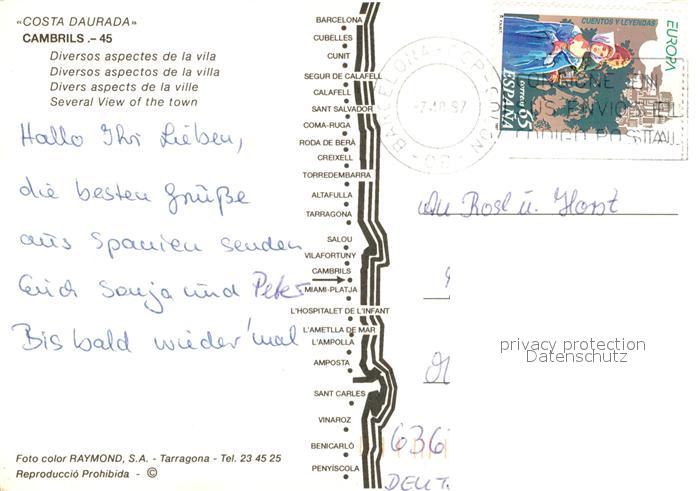 «COSTA DAURADA»
CAMBRILS .- 45
Diversos aspectes de la vila
Diversos aspectos de la villa
Divers aspects de la ville
Several View of the town
Hallo Ihr Lieben,
die besten Grüße
aus Spanien senden
Euch Sonja und Peter
Bis bald wieder 'mal
Foto color RAYMOND, S.A. - Tarragona - Tel. 23 45 25
Reproducció Prohibida - ©
BARCELONA
CUBELLES
CUNIT
SEGUR DE CALAFELL
CALAFELL
SANT SALVADOR
COMA-RUGA
RODA DE BERÀ
CREIXELL
TORREDEMBARRA
ALTAFULLA
TARRAGONA
SALOU
VILAFORTUNY
CAMBRILS
MIAMI-PLATJA
L'HOSPITALET DE L'INFANT
L'AMETLLA DE MAR
L'AMPOLLA
AMPOSTA
SANT CARLES
VINAROZ
BENICARLÓ
PENYÍSCOLA
CUENTOS Y LEYENDAS
EUROPA
ESPAÑA
65
BARCELONA
CODIGO POSTAL
An Rosl u. Horst
privacy protection
Datenschutz
636